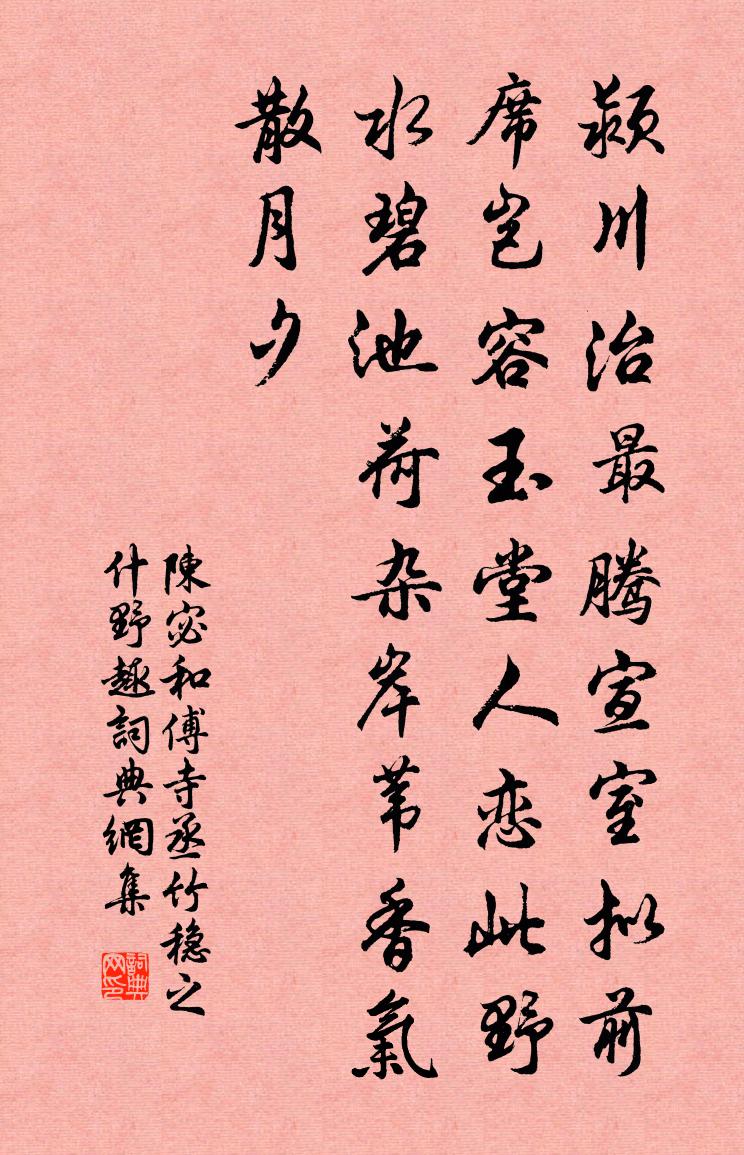 颍川治最腾宣室拟前
席岂容玉堂人恋此野
水碧池荷杂岸苇香氣
散月夕
陳宓和傅寺丞竹稳之
什野趣詞典網集
詞典
网印